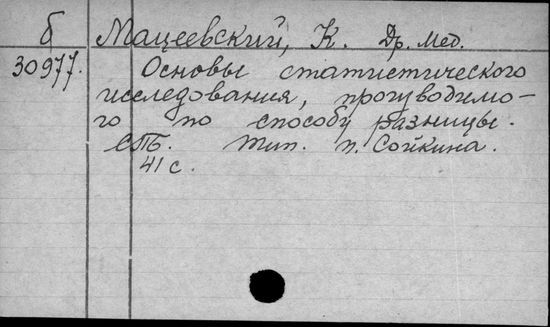 б Мацеевский, К. Др. мед.
30977. Основы статистического
исследования, производимо-
го по способу разницы.
СПБ. тип. П. Сойкина.
41 с.